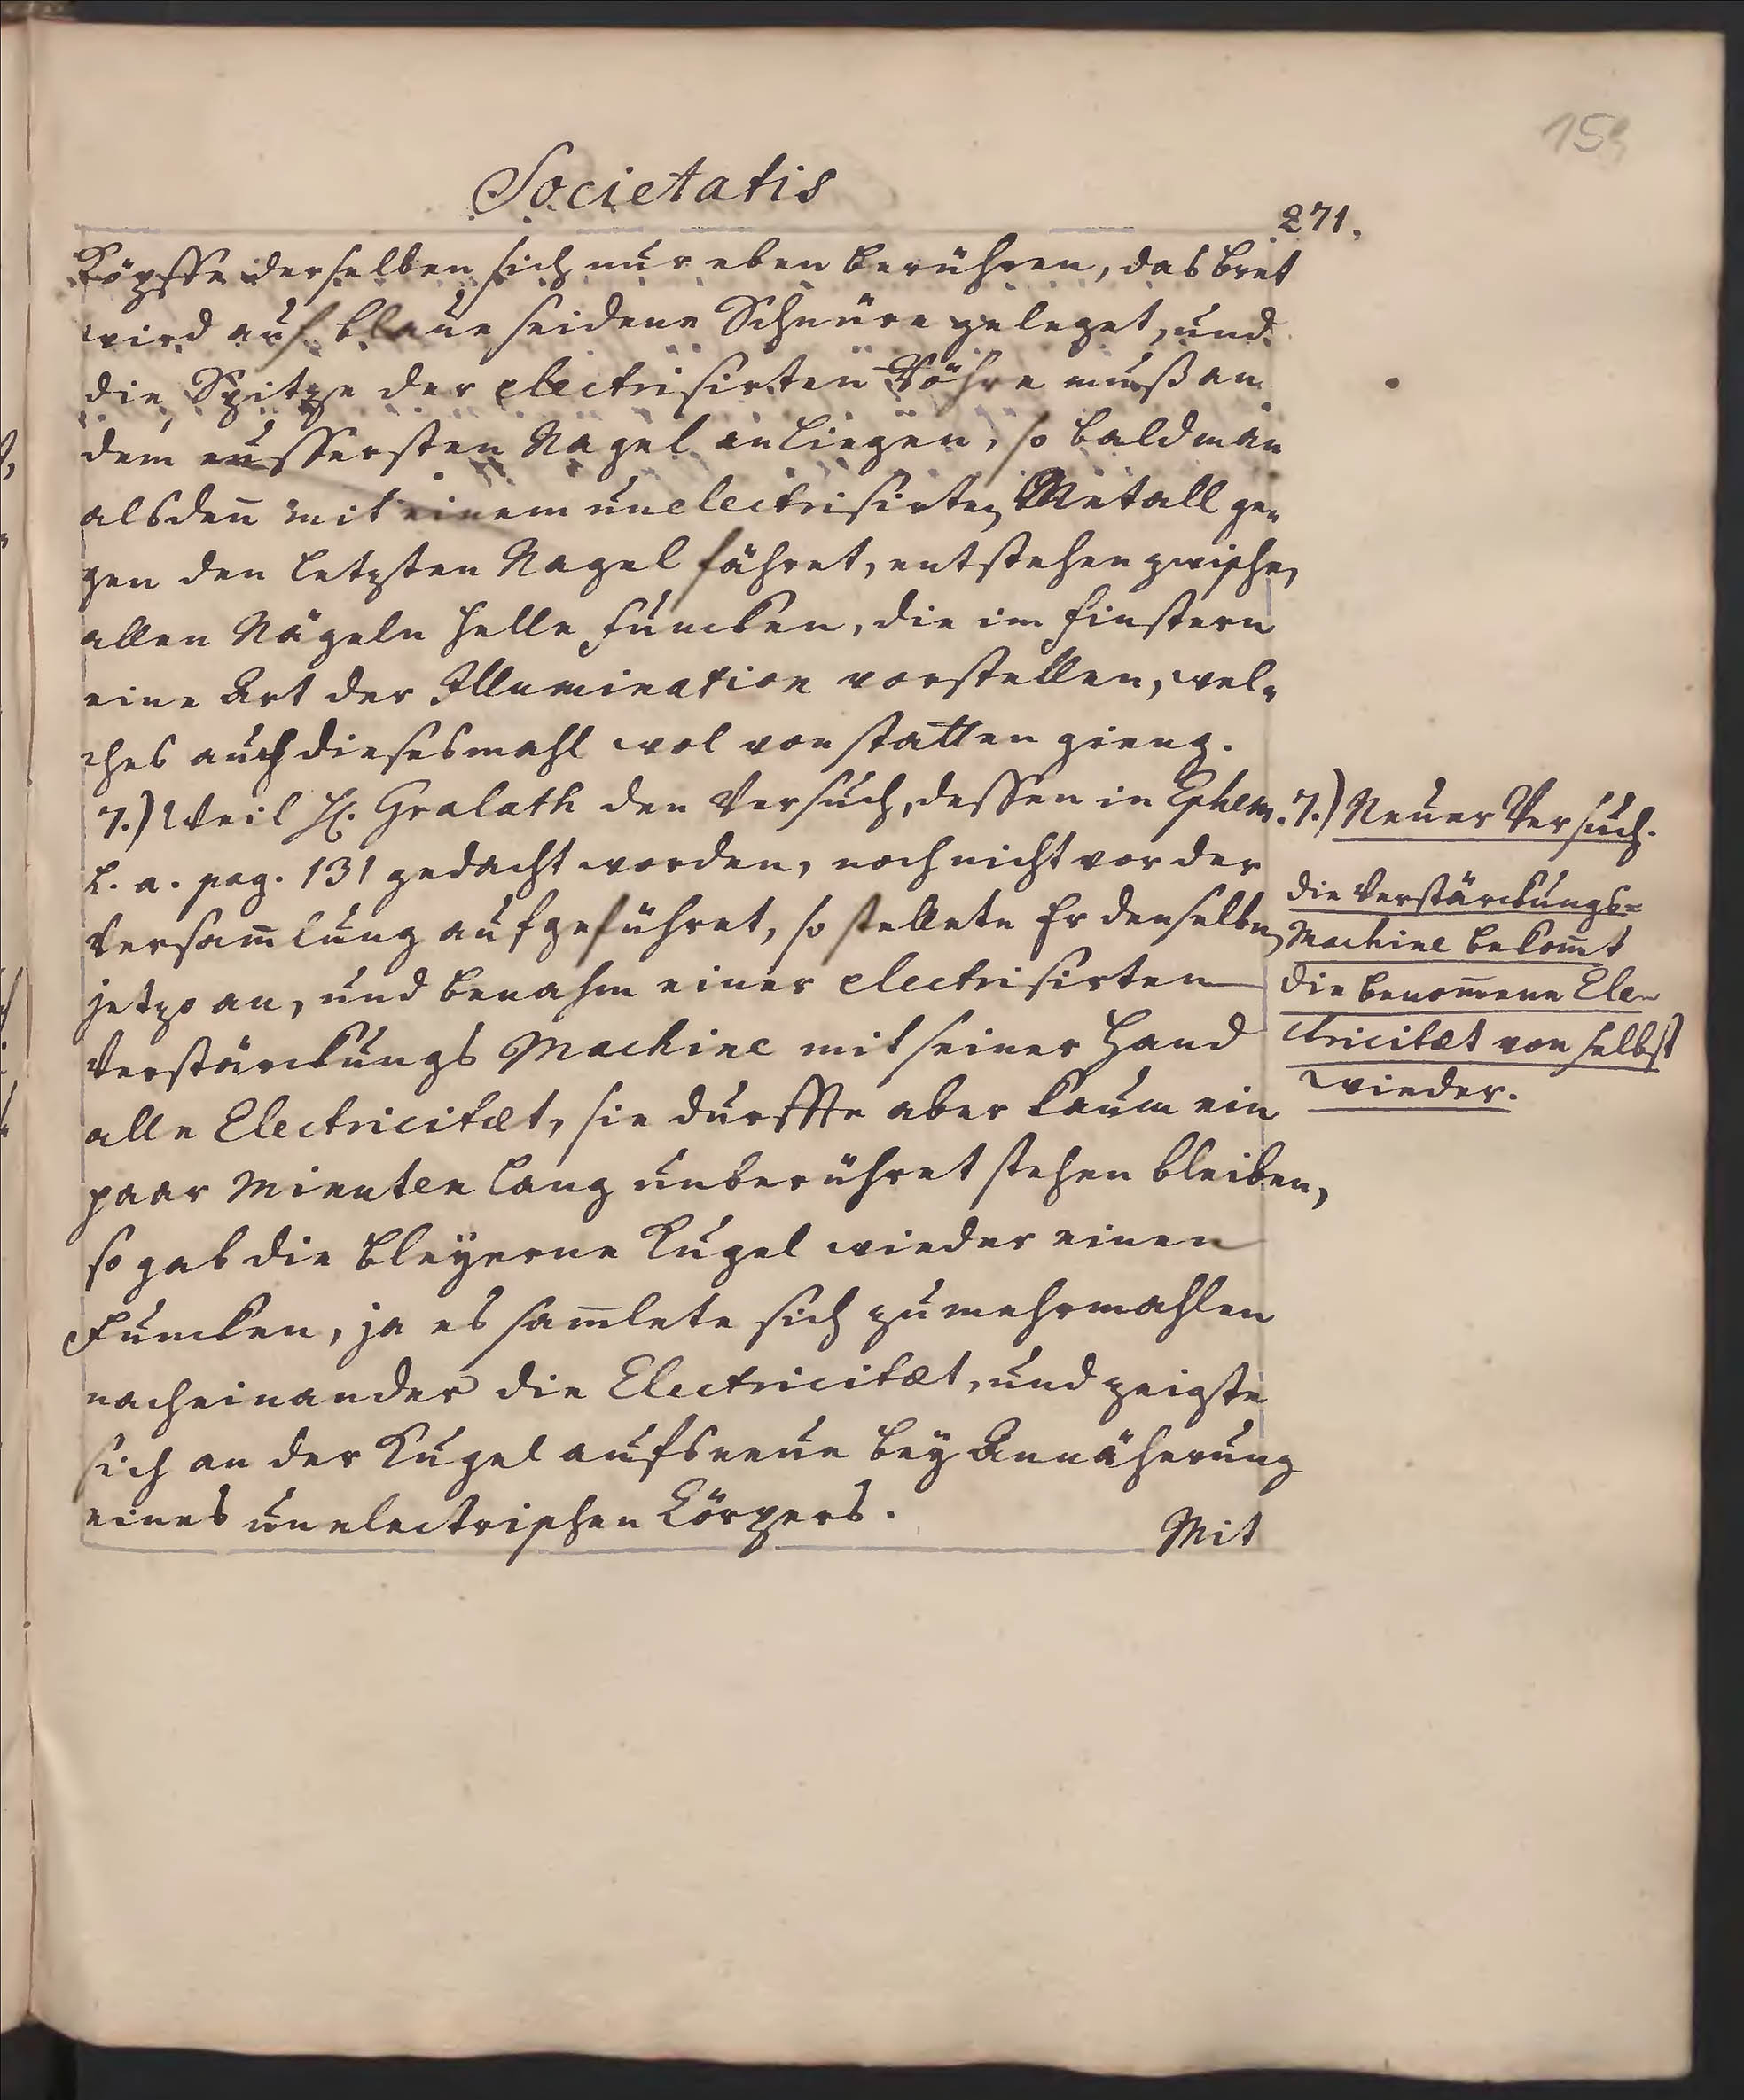 Societatis
271.
Köpffe derselben sich nur eben berühren, das bret
wird auf blaue seidene Schnüre geleget, und
die Spitze der electrisirten Röhre muß an
dem eussersten Nagel anliegen, so bald man
alsdeñ mit einem unelectrisirten Metall ge„
gen den letzten Nagel fähret, entstehen zwischen
allen Nägeln helle Funcken, die im finstern
eine Art der Illumination vorstellen, wel„
ches auch diesesmahl wol von statten gieng.
7.) Weil H. Gralath den Versuch, dessen in Ephem.
l. a. pag. 131 gedacht worden, noch nicht vor der
Versam̄lung aufgeführet, so stellete Er denselben
jetzo an, und benahm einer electrisirten
Verstärckungs Machine mit seiner Hand
alle Electricitæt, sie durffte aber kaum ein
paar Minuten lang unberühret stehen bleiben,
so gab die bleyerne Kugel wieder einen
Funcken, ja es sam̄lete sich zu mehrmahlen
nacheinander die Electricitæt, und zeigte
sich an der Kugel aufs neue bey Annäherung
eines unelectrischen Körpers.
Mit
7.) Neuer Versuch.
die Verstärckungs=
Machine bekom̄t
die benom̄ene Ele„
ctricitæt von selbst
wieder.